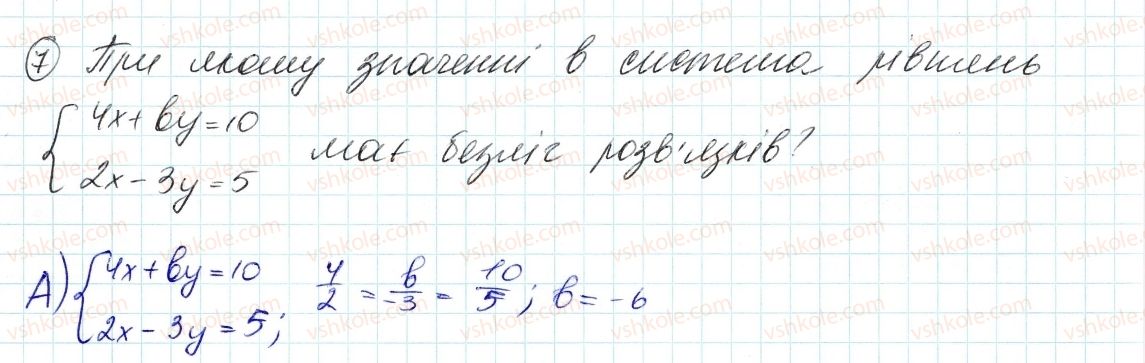 7 При якому значенні в система рівнянь
{ 4x + вy = 10
2x − 3y = 5 має безліч розв'язків?
А) { 4x + вy = 10
2x − 3y = 5; 4/2 = в/−3 = 10/5; в = −6